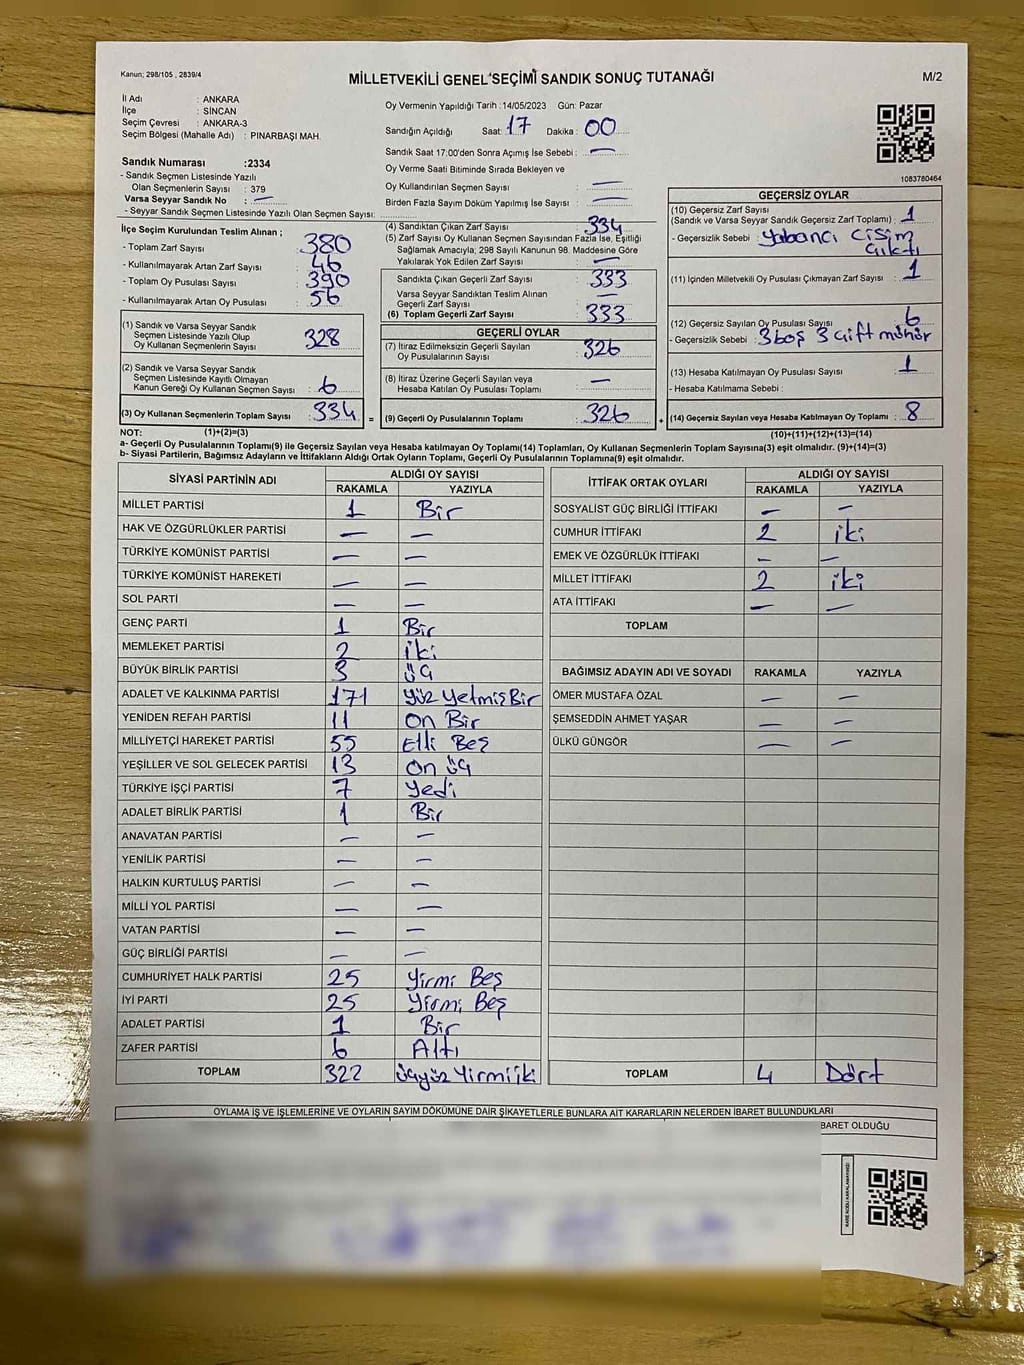 Kanun; 298/105 , 2839/4
MİLLETVEKİLİ GENEL SEÇİMİ SANDIK SONUÇ TUTANAĞI
M/2
İl Adı : ANKARA
İlçe : SİNCAN
Seçim Çevresi : ANKARA-3
Seçim Bölgesi (Mahalle Adı) : PINARBAŞI MAH.
Sandık Numarası :2334
- Sandık Seçmen Listesinde Yazılı
Olan Seçmenlerin Sayısı : 379
Varsa Seyyar Sandık No : —
- Seyyar Sandık Seçmen Listesinde Yazılı Olan Seçmen Sayısı:
Oy Vermenin Yapıldığı Tarih :14/05/2023 Gün: Pazar
Sandığın Açıldığı Saat: 17 Dakika : 00
Sandık Saat 17:00'den Sonra Açımış İse Sebebi : —
Oy Verme Saati Bitiminde Sırada Bekleyen ve
Oy Kullandırılan Seçmen Sayısı : —
Birden Fazla Sayım Döküm Yapılmış İse Sayısı : —
1083780464
İlçe Seçim Kurulundan Teslim Alınan ;
- Toplam Zarf Sayısı : 380
- Kullanılmayarak Artan Zarf Sayısı : 46
- Toplam Oy Pusulası Sayısı : 390
- Kullanılmayarak Artan Oy Pusulası : 56
(1) Sandık ve Varsa Seyyar Sandık
Seçmen Listesinde Yazılı Olup
Oy Kullanan Seçmenlerin Sayısı : 328
(2) Sandık ve Varsa Seyyar Sandık
Seçmen Listesinde Kayıtlı Olmayan
Kanun Gereği Oy Kullanan Seçmen Sayısı : 6
(3) Oy Kullanan Seçmenlerin Toplam Sayısı : 334 =
(4) Sandıktan Çıkan Zarf Sayısı : 334
(5) Zarf Sayısı Oy Kullanan Seçmen Sayısından Fazla İse, Eşitliği
Sağlamak Amacıyla; 298 Sayılı Kanunun 98. Maddesine Göre
Yakılarak Yok Edilen Zarf Sayısı : —
Sandıkta Çıkan Geçerli Zarf Sayısı : 333
Varsa Seyyar Sandıktan Teslim Alınan
Geçerli Zarf Sayısı : —
(6) Toplam Geçerli Zarf Sayısı : 333
GEÇERLİ OYLAR
(7) İtiraz Edilmeksizin Geçerli Sayılan
Oy Pusulalarının Sayısı : 326
(8) İtiraz Üzerine Geçerli Sayılan veya
Hesaba Katılan Oy Pusulası Toplamı : —
(9) Geçerli Oy Pusulalarının Toplamı : 326 +
GEÇERSİZ OYLAR
(10) Geçersiz Zarf Sayısı
(Sandık ve Varsa Seyyar Sandık Geçersiz Zarf Toplamı) : 1
- Geçersizlik Sebebi : Yabancı cisim
çıktı
(11) İçinden Milletvekili Oy Pusulası Çıkmayan Zarf Sayısı : 1
(12) Geçersiz Sayılan Oy Pusulası Sayısı : 6
- Geçersizlik Sebebi : 3 boş 3 çift mühür
(13) Hesaba Katılmayan Oy Pusulası Sayısı : 1
- Hesaba Katılmama Sebebi :
(14) Geçersiz Sayılan veya Hesaba Katılmayan Oy Toplamı : 8
NOT: (1)+(2)=(3)
(10)+(11)+(12)+(13)=(14)
a- Geçerli Oy Pusulalarının Toplamı(9) ile Geçersiz Sayılan veya Hesaba katılmayan Oy Toplamı(14) Toplamları, Oy Kullanan Seçmenlerin Toplam Sayısına(3) eşit olmalıdır. (9)+(14)=(3)
b- Siyasi Partilerin, Bağımsız Adayların ve İttifakların Aldığı Ortak Oyların Toplamı, Geçerli Oy Pusulalarının Toplamına(9) eşit olmalıdır.
SİYASİ PARTİNİN ADI
ALDIĞI OY SAYISI
RAKAMLA YAZIYLA
MİLLET PARTİSİ 1 Bir
HAK VE ÖZGÜRLÜKLER PARTİSİ — —
TÜRKİYE KOMÜNİST PARTİSİ — —
TÜRKİYE KOMÜNİST HAREKETİ — —
SOL PARTİ — —
GENÇ PARTİ 1 Bir
MEMLEKET PARTİSİ 2 iki
BÜYÜK BİRLİK PARTİSİ 3 üç
ADALET VE KALKINMA PARTİSİ 171 Yüz Yetmiş Bir
YENİDEN REFAH PARTİSİ 11 On Bir
MİLLİYETÇİ HAREKET PARTİSİ 55 Elli Beş
YEŞİLLER VE SOL GELECEK PARTİSİ 13 On üç
TÜRKİYE İŞÇİ PARTİSİ 7 Yedi
ADALET BİRLİK PARTİSİ 1 Bir
ANAVATAN PARTİSİ — —
YENİLİK PARTİSİ — —
HALKIN KURTULUŞ PARTİSİ — —
MİLLİ YOL PARTİSİ — —
VATAN PARTİSİ — —
GÜÇ BİRLİĞİ PARTİSİ — —
CUMHURİYET HALK PARTİSİ 25 Yirmi Beş
İYİ PARTİ 25 Yirmi Beş
ADALET PARTİSİ 1 Bir
ZAFER PARTİSİ 6 Altı
TOPLAM 322 üçyüz Yirmi iki
İTTİFAK ORTAK OYLARI
ALDIĞI OY SAYISI
RAKAMLA YAZIYLA
SOSYALİST GÜÇ BİRLİĞİ İTTİFAKI — —
CUMHUR İTTİFAKI 2 iki
EMEK VE ÖZGÜRLÜK İTTİFAKI — —
MİLLET İTTİFAKI 2 iki
ATA İTTİFAKI — —
TOPLAM
BAĞIMSIZ ADAYIN ADI VE SOYADI RAKAMLA YAZIYLA
ÖMER MUSTAFA ÖZAL — —
ŞEMSEDDİN AHMET YAŞAR — —
ÜLKÜ GÜNGÖR — —
TOPLAM 4 Dört
OYLAMA İŞ VE İŞLEMLERİNE VE OYLARIN SAYIM DÖKÜMÜNE DAİR ŞİKAYETLERLE BUNLARA AİT KARARLARIN NELERDEN İBARET BULUNDUKLARI
BARET OLDUĞU